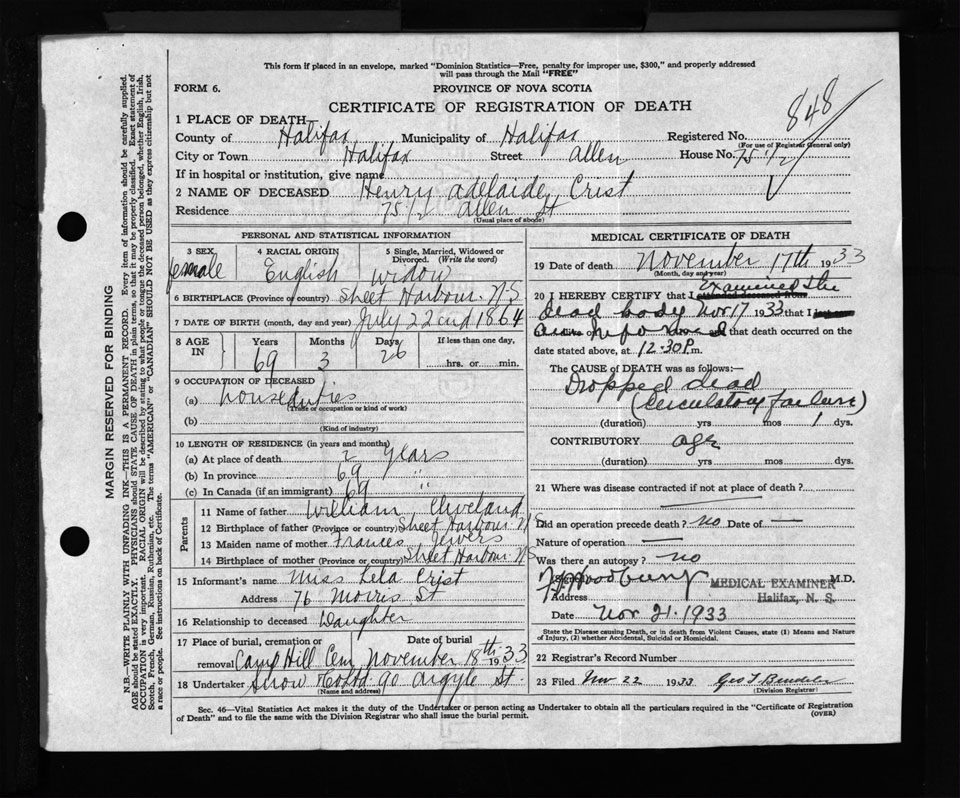 This form if placed in an envelope, marked "Dominion Statistics—Free, penalty for improper use, $300," and properly addressed
will pass through the Mail "FREE"
FORM 6. PROVINCE OF NOVA SCOTIA
CERTIFICATE OF REGISTRATION OF DEATH
848
1 PLACE OF DEATH
County of Halifax Municipality of Halifax Registered No.
(For use of Registrar General only)
City or Town Halifax Street Allen House No. 75 1/2
If in hospital or institution, give name
2 NAME OF DECEASED Henry Adelaide Crist
Residence 75 1/2 Allen St
(Usual place of abode)
PERSONAL AND STATISTICAL INFORMATION
3 SEX 4 RACIAL ORIGIN 5 Single, Married, Widowed or
Divorced. (Write the word)
female English widow
6 BIRTHPLACE (Province or country) Sheet Harbour. N S
7 DATE OF BIRTH (month, day and year) July 22nd 1864
8 AGE IN Years Months Days If less than one day,
69 3 26 hrs. or min.
9 OCCUPATION OF DECEASED
(a) house duties
(Trade or occupation or kind of work)
(b)
(Kind of industry)
10 LENGTH OF RESIDENCE (in years and months)
(a) At place of death 2 years
(b) In province 69 "
(c) In Canada (if an immigrant) 69 "
Parents
11 Name of father William Cleveland
12 Birthplace of father (Province or country) Sheet Harbour N S
13 Maiden name of mother Frances Jewers
14 Birthplace of mother (Province or country) Sheet Harbour N S
15 Informant's name Miss Lela Crist
Address 76 Morris St
16 Relationship to deceased Daughter
17 Place of burial, cremation or Date of burial
removal Camp Hill Cem November 18th 1933
18 Undertaker Snow & Co Ltd 90 Argyle St.
(Name and address)
MEDICAL CERTIFICATE OF DEATH
19 Date of death November 17th 1933
(Month, day and year)
20 I HEREBY CERTIFY that I examined the
dead body Nov 17 1933 that I
and that death occurred on the
date stated above, at 12.30 P.m.
The CAUSE OF DEATH was as follows:—
Dropped dead
(Circulatory failure)
(duration) yrs mos 1 dys.
CONTRIBUTORY age
(duration) yrs mos dys.
21 Where was disease contracted if not at place of death?
Did an operation precede death? no Date of —
Nature of operation —
Was there an autopsy? no
M.D.
MEDICAL EXAMINER
Address Halifax, N. S.
Date Nov 21. 1933
State the Disease causing Death, or in death from Violent Causes, state (1) Means and
Nature of Injury, (2) whether Accidental, Suicidal or Homicidal.
22 Registrar's Record Number
23 Filed Nov 22 1933 Geo
(Division Registrar)
Sec. 46—Vital Statistics Act makes it the duty of the Undertaker or person acting as Undertaker to obtain all the particulars required in the "Certificate of Registration
of Death" and to file the same with the Division Registrar who shall issue the burial permit. (OVER)
MARGIN RESERVED FOR BINDING
N.B.—WRITE PLAINLY WITH UNFADING INK—THIS IS A PERMANENT RECORD. Every item of information should be carefully supplied.
AGE should be stated EXACTLY. PHYSICIANS should STATE CAUSE OF DEATH in plain terms, so that it may be properly classified. Exact statement of
OCCUPATION is very important. RACIAL ORIGIN will be described by stating to what people or tongue the deceased person belonged, whether English, Irish,
Scotch, French, German, Russian, Ruthenian, etc. The terms "AMERICAN" or "CANADIAN" SHOULD NOT BE USED as they express citizenship but not
a race or people. See instructions on back of Certificate.